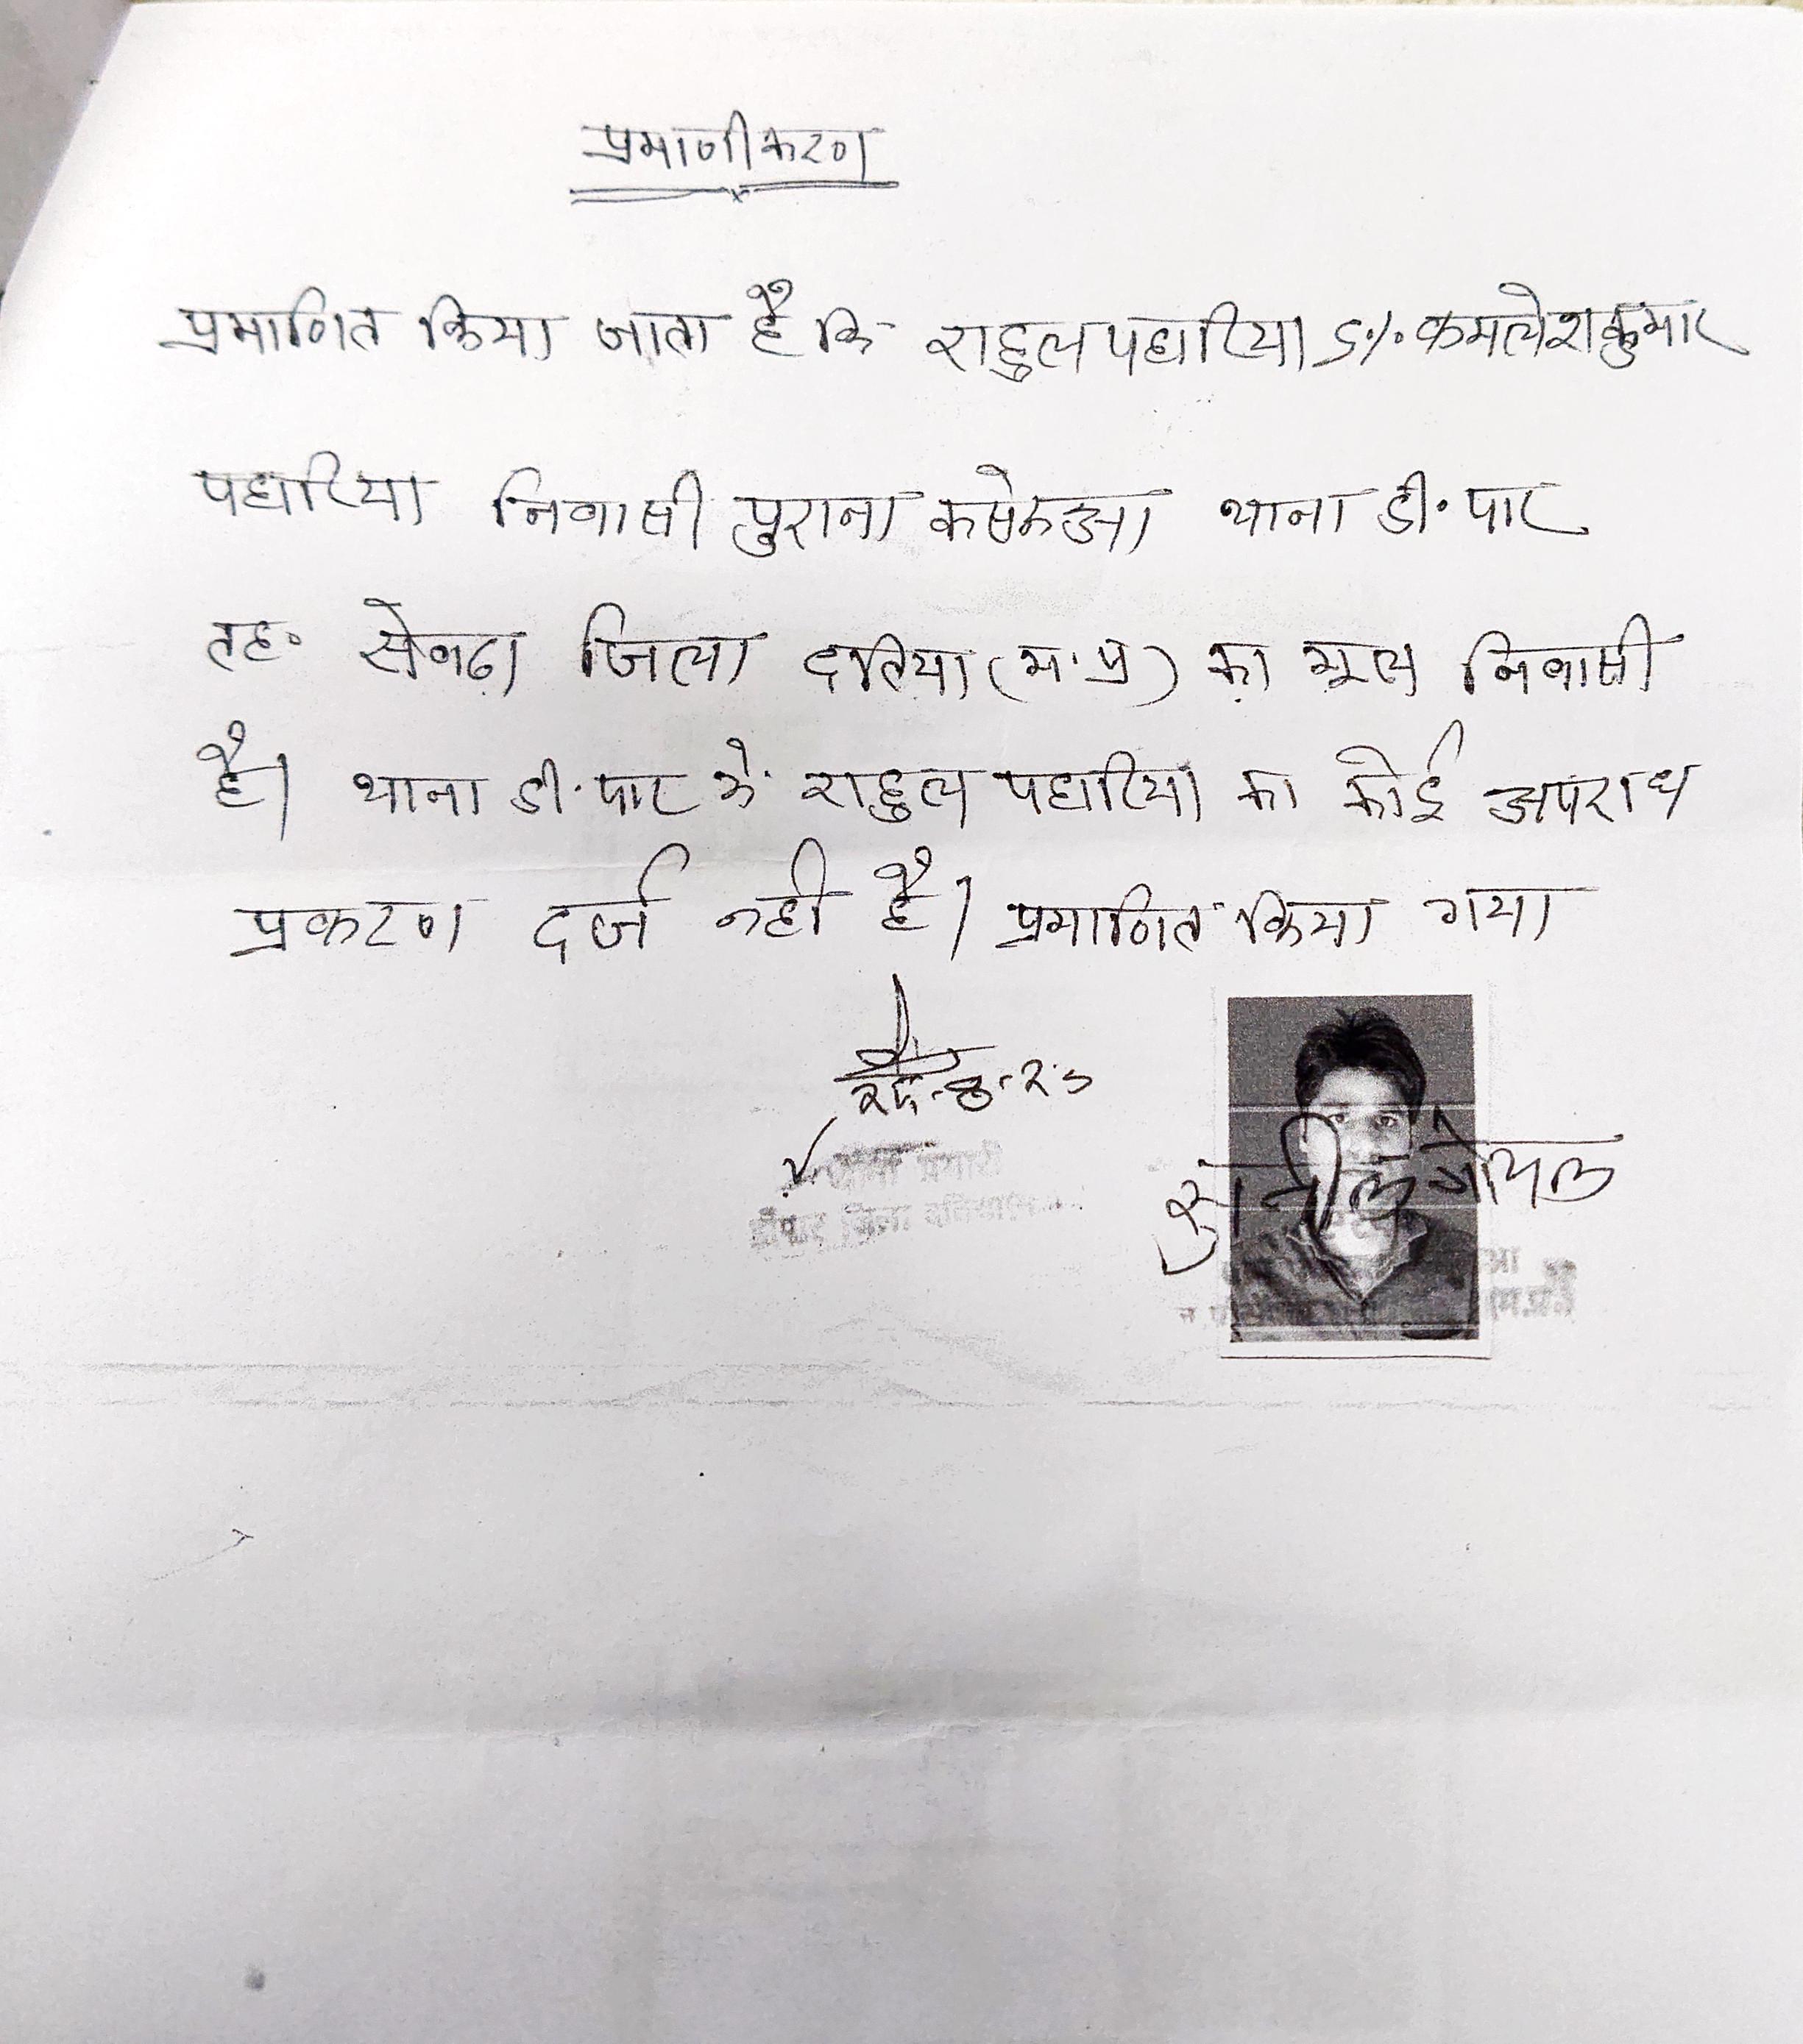 प्रमाणीकरण
प्रमाणित किया जाता है कि राहुल पधारिया S/. कमलेश कुमार
पधारिया निवासी पुराना कसेरुआ थाना डी. पार
तह. सेवढा जिला दतिया (म.प्र) का मूल निवासी
है। थाना डी. पार मे राहुल पधारिया का कोई अपराध
प्रकरण दर्ज नही है। प्रमाणित किया गया
सुनील गोयल